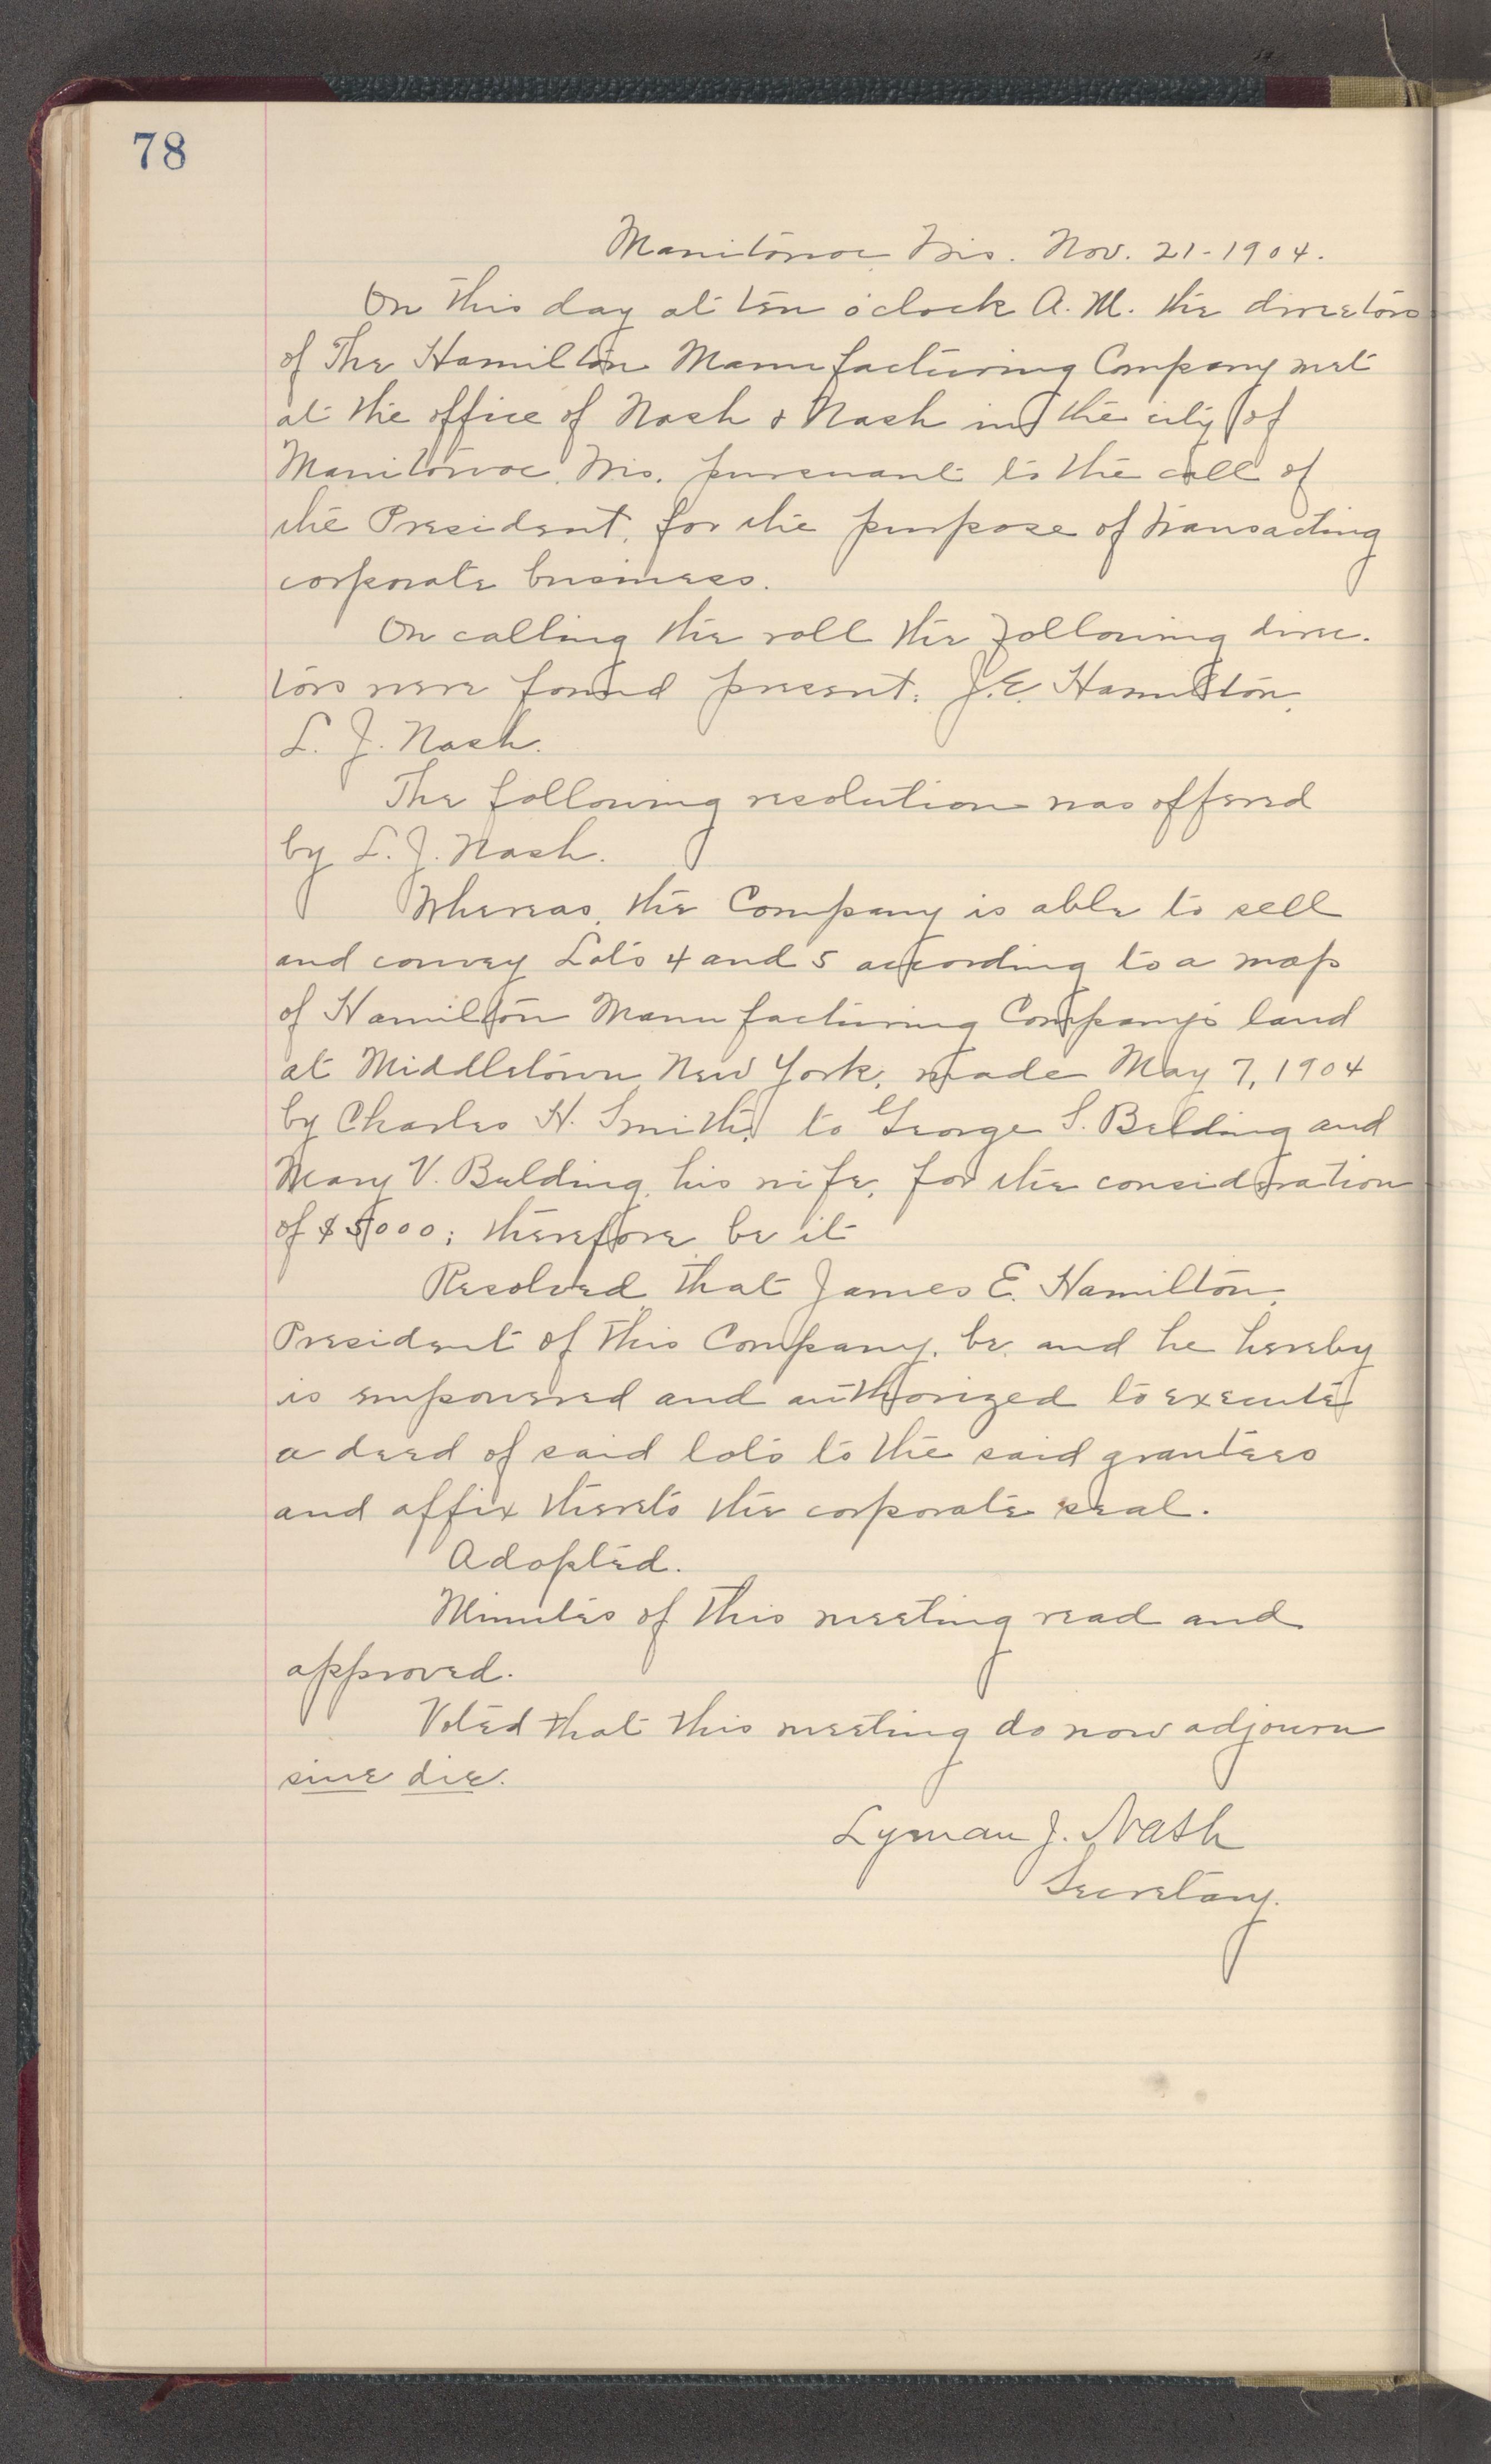 78
Manitowoc, Wis. Nov. 21-1904.
On this day at ten o'clock A.M. the directors
of The Hamilton Manufacturing Company met
at the office of Nash & Nash in the city of
Manitowoc, Wis. pursuant to the call of
the President, for the purpose of transacting
corporate business.
On calling the roll the following direc-
tors were found present: J.E. Hamilton,
L. J. Nash.
The following resolution was offered
by L. J. Nash.
Whereas, the Company is able to sell
and convey Lots 4 and 5 according to a map
of Hamilton Manufacturing Company's land
at Middletown, New York, made May 7, 1904
by Charles H. Smith, to George S. Belding and
Mary V. Belding, his wife, for the consideration
of $5000; therefore be it
Resolved, that James E. Hamilton,
President of this Company, be, and he hereby
is empowered and authorized to execute
a deed of said lots to the said grantees
and affix thereto the corporate seal.
Adopted.
Minutes of this meeting read and
approved.
Voted that this meeting do now adjourn
sine die.
Lyman J. Nash
Secretary.